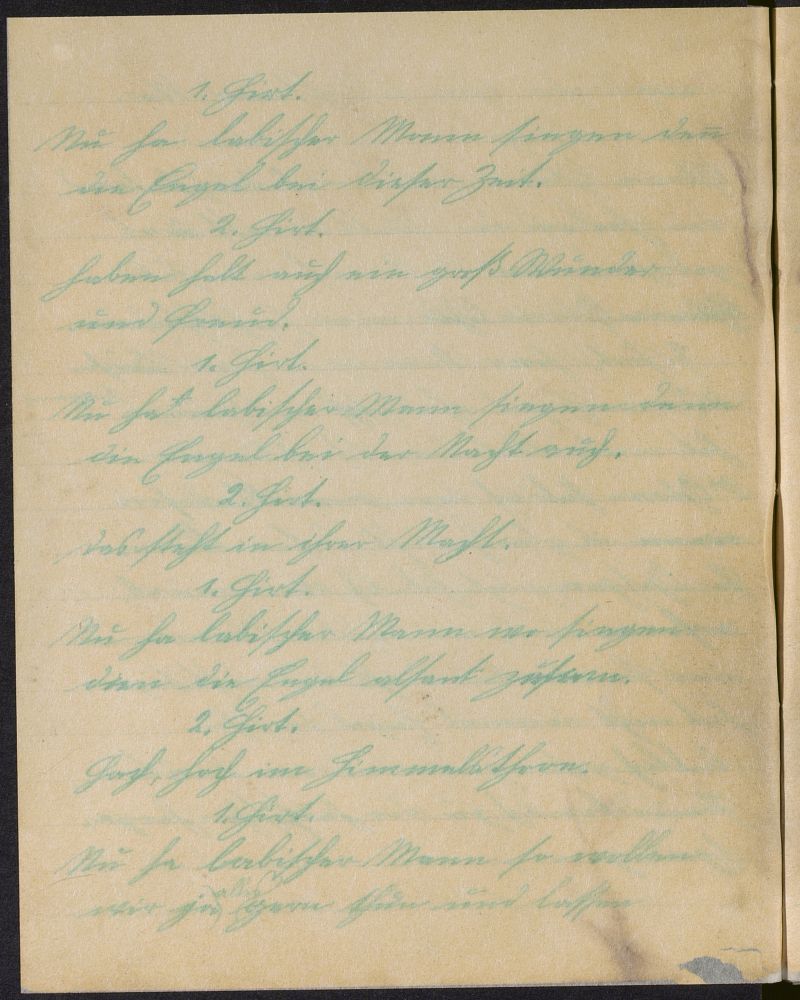 1. Hirt.
Nu ha labischer Mann singen den̄
die Engel bei dieser Zeit.
2. Hirt.
haben halt auch ein groß Wunder
und Freud.
1. Hirt.
Nu ha labischer Mann singen denn
die Engel bei der Nacht auch.
2. Hirt.
das steht in ihrer Macht.
1. Hirt.
Nu ha labischer Mann wo singen
dien die Engel alsant
2. Hirt.
Hoch, hoch im Himmelsthron.
1. Hirt.
Nu ha labischer Mann so wollen
wir ja alles gern thun und lassen